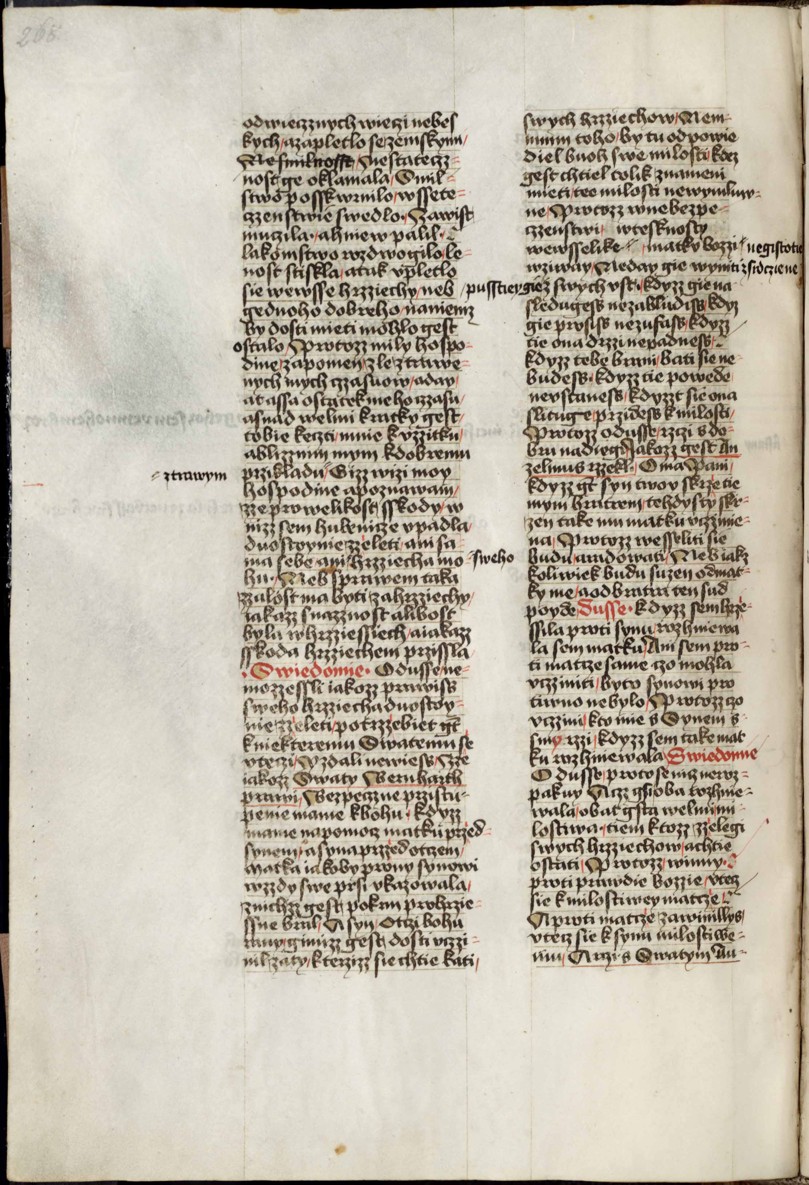 268
odwieczznych wieczi nebes
kych a zapletlo se zemskymi
Nesmilnosst Nestatecz
nost ge oklamala Smil
stwo posskwrnilo wssete
czzenstwie swedlo Zawist
muczila ahniew palil
lakomstwo wzdwogilo le
nost stiskla atak vpletlo
sie wewsse hrzziechy neb
gednoho dobreho naniemz
by dosti mieti mohlo gest
ostalo Protozz mily hospo
dine zapomen zle ztrawe
nych mych czzasuow aday
at assa ostatek meho czzasu
asnad welmi kratky gest
tobie keczti mnie kvzzitku
ablizznim mym kdobremu
przikladu Gizz wizi moy
ztrawym
hospodine apoznawam
zze pro welikost sskody w
nizz sem hubenicze vpadla
duostoynie zzeleti ani sa
ma sebe ani hrzziecha mo
sweho
hu Neb sprawem taka
zzalost ma byti zahrzziechy
iakazz snazznost alibost
byla whrzziessiech aiakazz
sskoda hrzziechem przissla
Swiedomie O dusse ne
mozzessli iakozz prawiss
sweho hrzziecha duostoy
nie zzeleti potrzzebiet gt
kniekteremu Swatemu se
vteczi Vzdali newiess Zze
iakozz Swaty Bernharth
prawi Bezpeczne przistu
penie mame kbohu kdyzz
mame napomocz matku przed
synem a syna przzed otczem
Matka iakoby prwny synowi
wzzdy swe prsi vkazowala
znichzz gest pokrm prohrzie
ssne bral A syn Otczi bohu
rany gimizz gest dosti vczi
nil zaty kterzizz sie chtie kati
swych hrzziechow Nem
nimi toho by tu odpowie
diel buoh swe milosti kdez
gest chtiel tolik znameni
mieti tee milosti newymluw
ne Protozz wnebezpe
czzenstwi wtesknosty
wewsselike matky bozzi
negistotie
wzyway Neday gie wyniti
zsrdcziene
pussttiey gie z swych vst kdyzz gie na
sledugess nezabludiss kdyz
gie prosiss nezufass kdyzz
tie ona drzzi nepadness
kdyzz tebe brani bati sie ne
budess kdyzz tie powede
nevstaness kdyzzt sie ona
slituge przidess kmilosti
Protozz o dusse rzczi s do
bru nadiegi Jakozz gest An
zelmus rzzekl O ma Pani
kdyzz gt syn twoy skrze tie
mym bratrem tehdy sty skr
zen take mu matku vczzinie
na Protozz wesseliti sie
budu aradowati Neb iakz
koliwiek budu suzen odmat
ky me aodbratra ten sud
poyde Dusse kdyzz sem hrze
ssila proti synu rozhniewa
la sem matku Ani sem pro
ti matcze same czo mohla
vczziniti byto synowi pro
tiwno nebylo Protozz czo
vczzini kto mie s Synem s
smirzzi kdyzz sem take mat
ku rozhniewala Swiedomie
O dusse proto se nicz neroz
pakuy Aczz gsi oba rozhnie
wala obat gsta welmi mi
lostiwa tiem ktozz zzelegi
swych hrzziechow achtie
ostati Protozz winny
proti prawdie bozzie vtecz
sie kmilostiwey matcze
A proti matcze zawinillys
vtecz sie k synu milostiwe
mu A rzi s Swatym Au